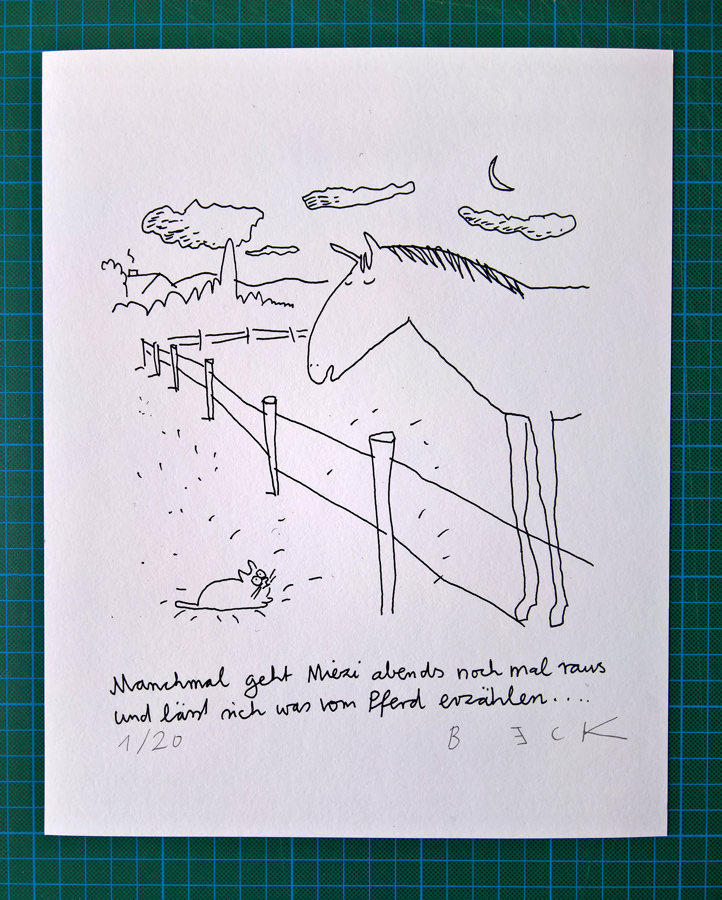 Manchmal geht Miezi abends noch mal raus
und lässt sich was vom Pferd erzählen....
1/20 BECK